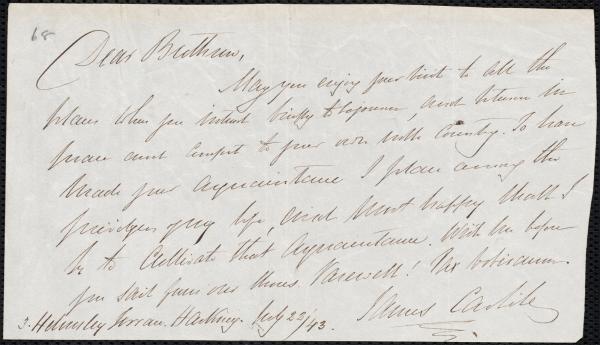 68
Dear Brethren,
May you enjoy your visit to all the
places when you intend briefly to sojourn, and return in
peace and comfort to your own with Country. To have
made your acquaintance I place among the
privileges of my life, and most happy shall I
be to cultivate that acquaintance. Write me before
you sail from our shores. Farewell! Pax vobiscum.
James Carlile
3. Helmsley Terrace. Hackney. July 22/43.